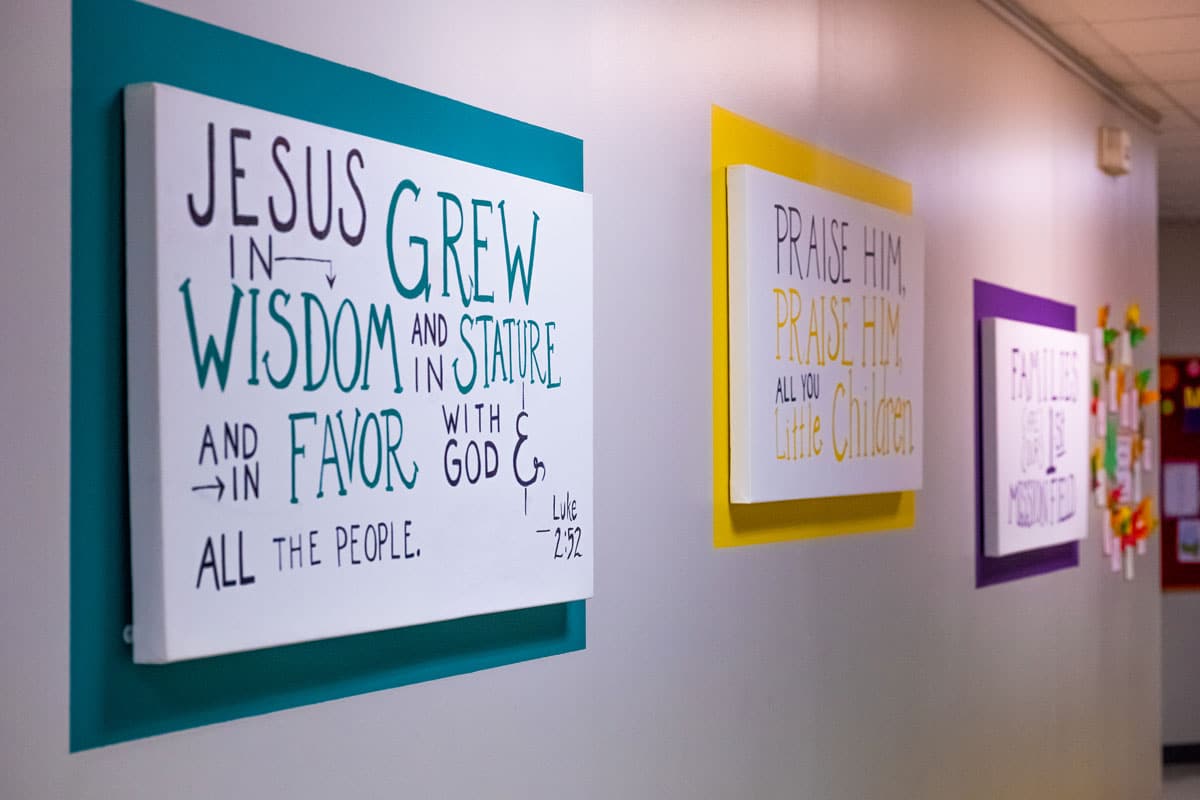 JESUS GREW
IN
WISDOM AND IN STATURE
AND IN FAVOR WITH GOD &
ALL THE PEOPLE.
Luke
2:52
PRAISE HIM,
PRAISE HIM,
ALL YOU
Little Children.
FAMILIES
1st
MISSION FIELD